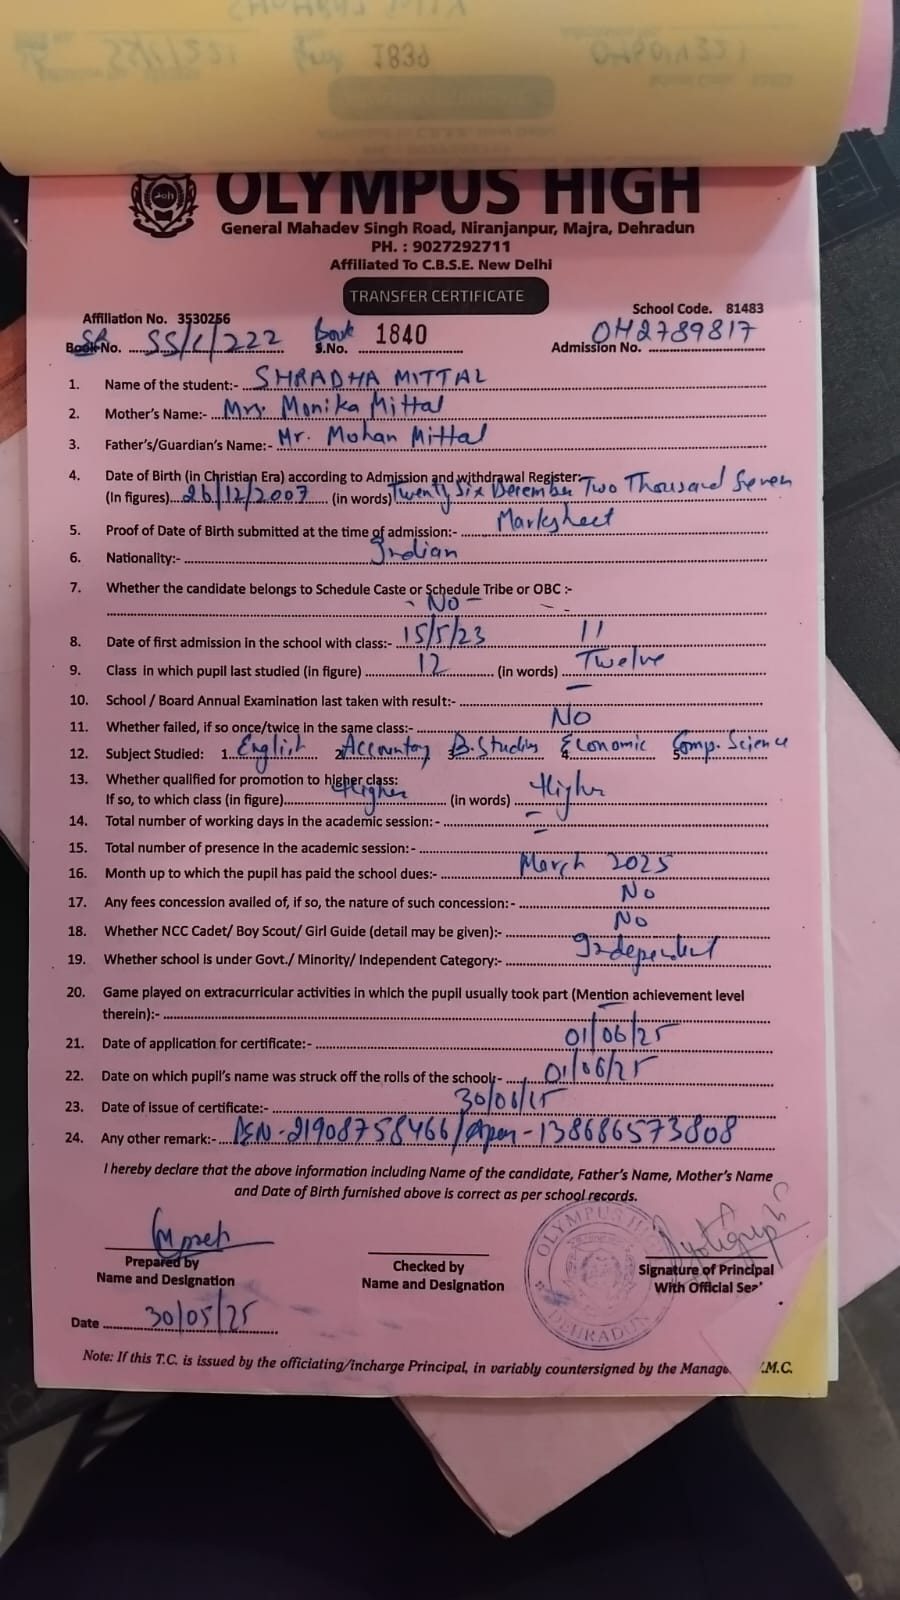 OLYMPUS HIGH
General Mahadev Singh Road, Niranjanpur, Majra, Dehradun
PH. : 9027292711
Affiliated To C.B.S.E. New Delhi
TRANSFER CERTIFICATE
Affiliation No. 3530256 School Code. 81483
SR No. SS/C/222 Book S.No. 1840 Admission No. OH2789817
1. Name of the student:- SHRADHA MITTAL
2. Mother's Name:- Mrs. Monika Mittal
3. Father's/Guardian's Name:- Mr. Mohan Mittal
4. Date of Birth (in Christian Era) according to Admission and withdrawal Register:-
(In figures) 26/12/2007 (in words) Twenty Six December Two Thousand Seven
5. Proof of Date of Birth submitted at the time of admission:- Marksheet
6. Nationality:- Indian
7. Whether the candidate belongs to Schedule Caste or Schedule Tribe or OBC :-
- No -
8. Date of first admission in the school with class:- 15/5/23 11
9. Class in which pupil last studied (in figure) 12 (in words) Twelve
10. School / Board Annual Examination last taken with result:- —
11. Whether failed, if so once/twice in the same class:- No
12. Subject Studied: 1. English 2. Accountacy 3. B.Studies 4. Economic 5. Comp. Science
13. Whether qualified for promotion to higher class:
If so, to which class (in figure) Higher (in words) Higher
14. Total number of working days in the academic session: - —
15. Total number of presence in the academic session: - —
16. Month up to which the pupil has paid the school dues:- March 2025
17. Any fees concession availed of, if so, the nature of such concession: - No
18. Whether NCC Cadet/ Boy Scout/ Girl Guide (detail may be given):- No
19. Whether school is under Govt./ Minority/ Independent Category:- Independent
20. Game played on extracurricular activities in which the pupil usually took part (Mention achievement level
therein):- —
21. Date of application for certificate:- 01/06/25
22. Date on which pupil's name was struck off the rolls of the school:- 01/06/25
23. Date of issue of certificate:- 30/06/25
24. Any other remark:- PEN-21908758466/Apar-138686573808
I hereby declare that the above information including Name of the candidate, Father's Name, Mother's Name
and Date of Birth furnished above is correct as per school records.
OLYMPUS HIGH DEHRADUN
Prepared by
Name and Designation
Checked by
Name and Designation
Signature of Principal
With Official Sea
Date 30/05/25
Note: If this T.C. is issued by the officiating/incharge Principal, in variably countersigned by the Manag .M.C.